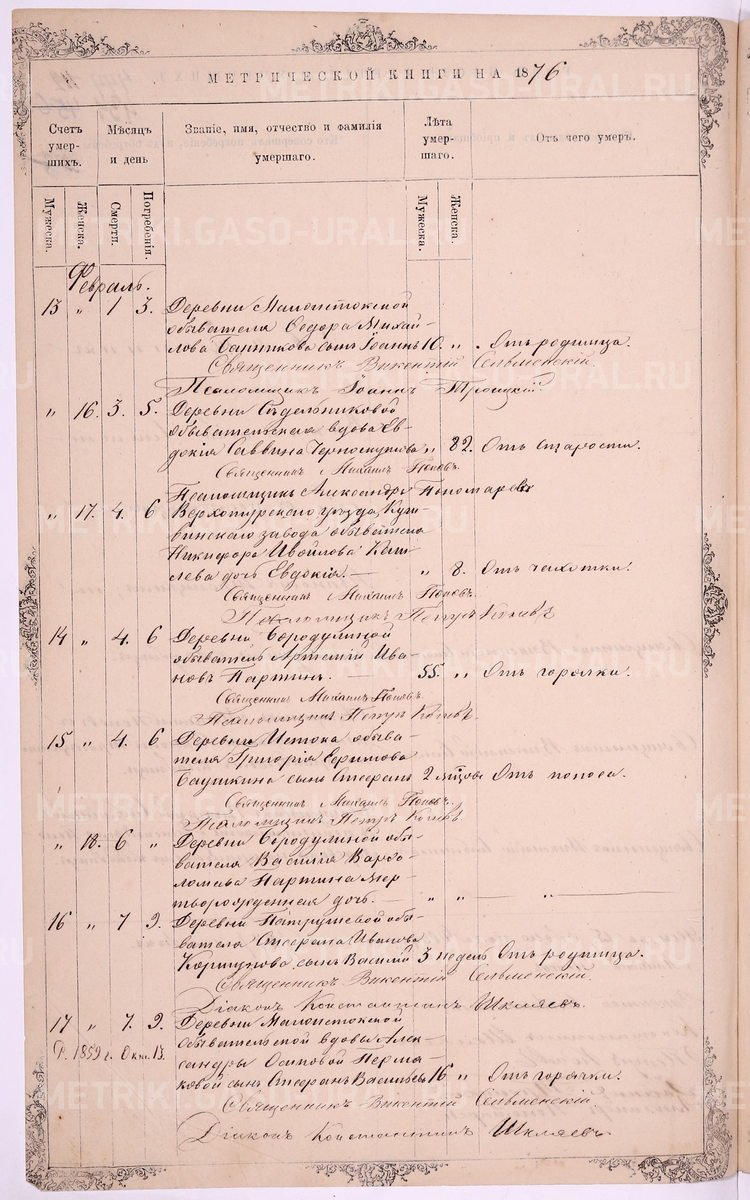 МЕТРИЧЕСКОЙ КНИГИ НА 1876
Счетъ умершихъ.
Мѣсяцъ и день
Званіе, имя, отчество и фамилія умершаго.
Лѣта умершаго.
Отъ чего умеръ.
Мужеска.
Женска.
Смерти.
Погребенія.
Мужеска.
Женска.
Февраль.
13 " 1 3. Деревни Малоистокской
обывателя Ѳедора Михай-
лова сынъ Іоаннъ 10. " Отъ родимца.
Священникъ Викентій Сельменскій.
Псаломщикъ Іоаннъ Троицкій.
" 16. 3. 5. Деревни Сѣдельниковой
обывательская вдова Ев-
докія Саввина " 82. Отъ старости.
Священникъ Михаилъ Поповъ.
Псаломщикъ Александръ Пономаревъ
" 17. 4. 6 Верхотурскаго уѣзда, Куш-
винскаго завода обывателя
Никифора дочь Евдокія. — " 8. Отъ чахотки.
Священникъ Михаилъ Поповъ.
Псаломщикъ Петръ
14 " 4. 6 Деревни Бородулиной
обыватель Артемій Ива-
новъ Партинъ. — 55. " Отъ горячки.
Священникъ Михаилъ Поповъ.
Псаломщикъ Петръ
15 " 4. 6 Деревни Истока обыва-
теля Григорія Ефимова
сынъ Стефанъ 2 мѣсяцовъ Отъ поноса.
Священникъ Михаилъ Поповъ
Псаломщикъ Петръ
" 18. 6 " Деревни Бородулиной обы-
вателя Василія Варѳо-
ломѣева Партина мер-
творожденная дочь. — " " — " —
16 " 7 9. Деревни Патрушевой обы-
вателя Стефана Иванова
Коршунова сынъ Василій 3 недѣль Отъ родимца.
Священникъ Викентій Сельменскій.
Діаконъ Константинъ Шкляевъ.
17 " 7. 9. Деревни Малоистокской
обывательской вдовы Алек-
Р. 1859 г. Окт. 13.
сандры Осиповой Перма-
ковой сынъ Стефанъ Васильевъ 16 " Отъ горячки.
Священникъ Викентій Сельменскій
Діаконъ Константинъ Шкляевъ
METRIKI.GASO-URAL.RU